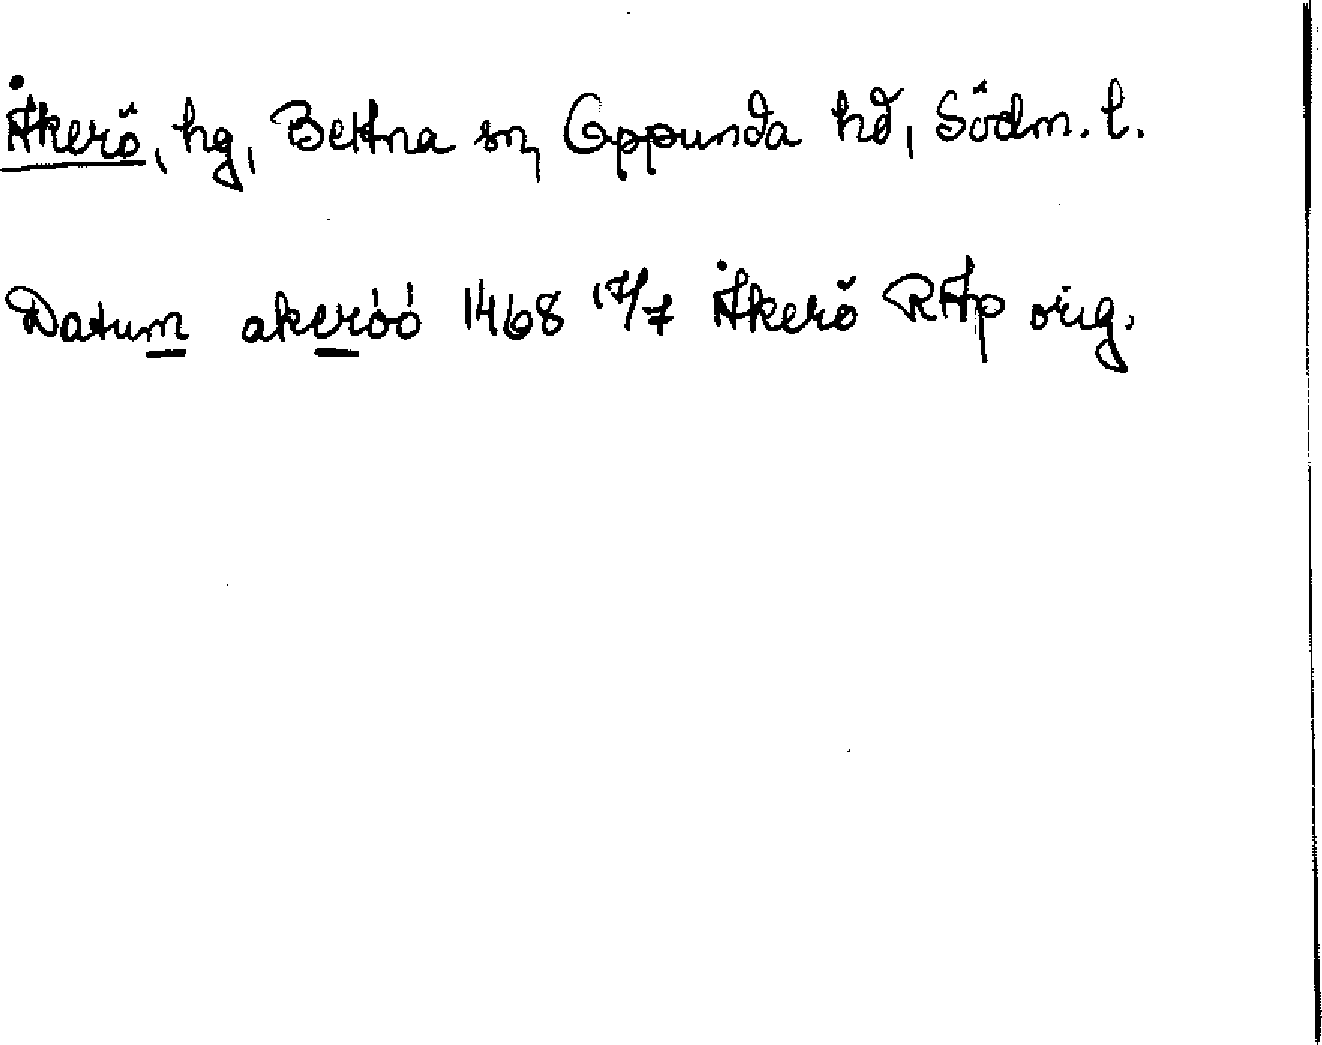 Åkerö, hg, Bettna sn, Oppunda hd, Södm. l.
Datum akeróó 1468 17/7 Åkerö RAp orig.